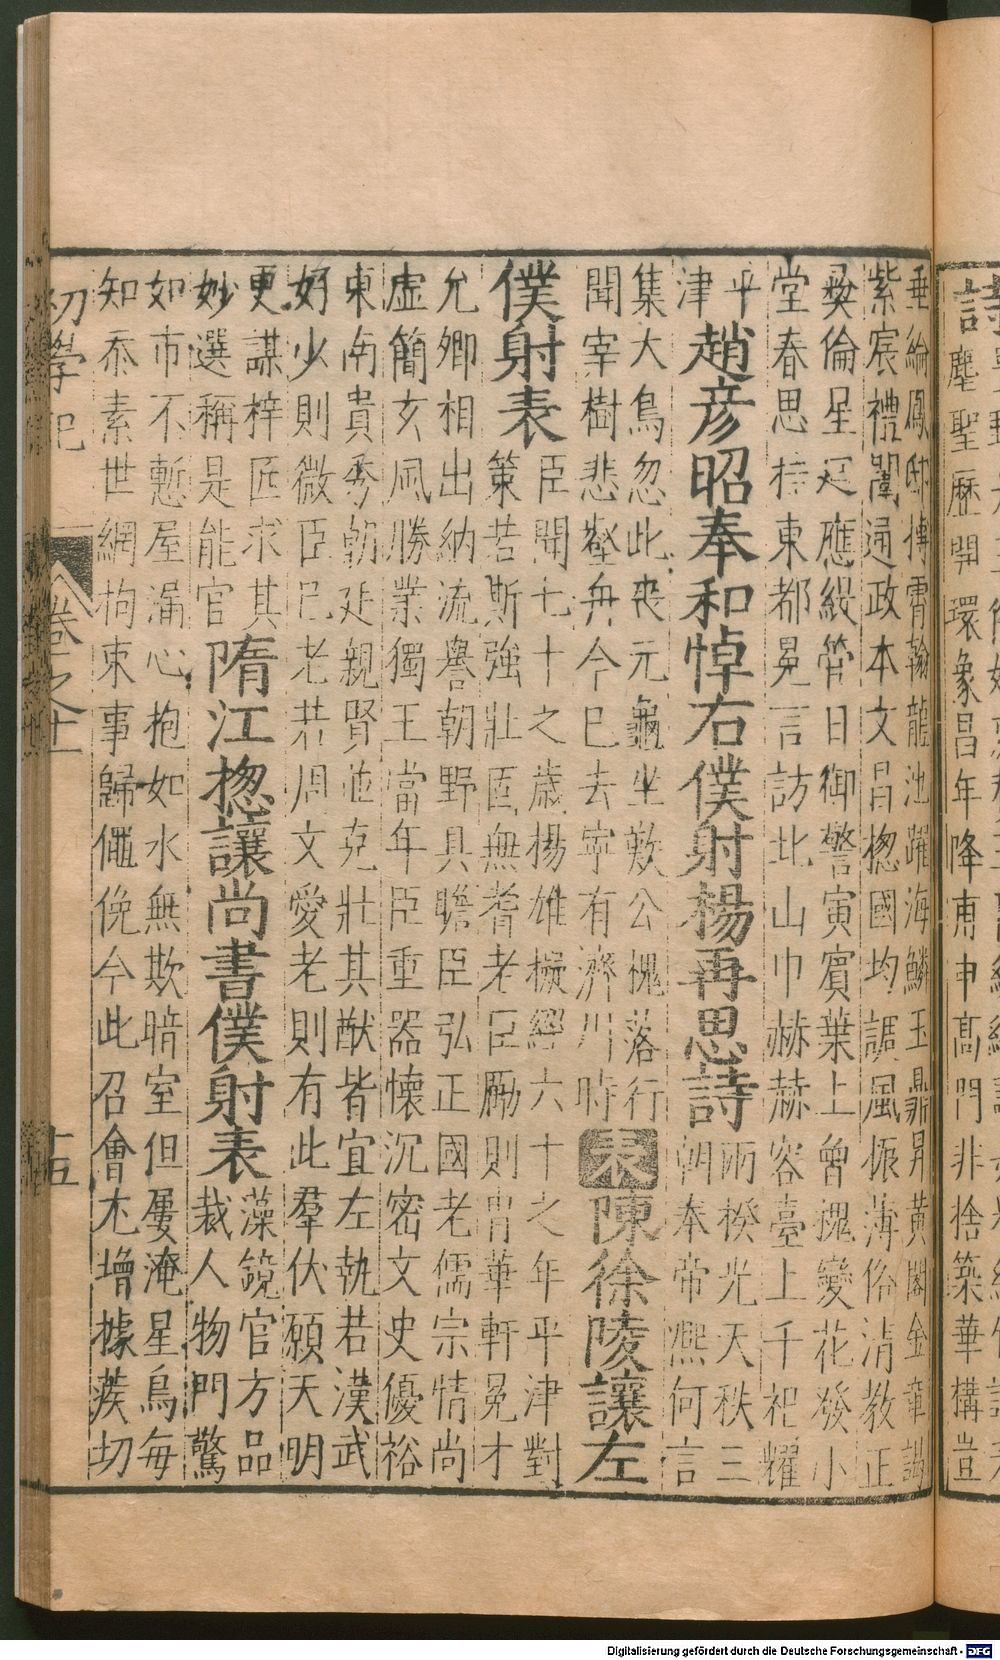 垂綸鳳邸摶霄翰龍池躍海鱗玉鼎昇黃閣金章謁
紫宸禮闈通政本文昌揔國均調風振薄俗清教正
彜倫星㝎應綬管日御警寅賓葉上曾槐變花發小
堂春思持東都冕言訪北山巾赫赫容臺上千祀耀
平津
趙彥昭奉和悼右僕射楊再思詩
兩揆光天秩三
朝奉帝熈何言
集大鳥忽此丧元龜坐歎公槐落行
聞宰樹悲壑舟今已去寧有濟川時
表
陳徐陵讓左
僕射表
臣聞七十之歲楊雄擬經六十之年平津對
策若斯強壯匡無耆老臣勵則胄華軒冕才
允卿相出納流譽朝野具瞻臣弘正國老儒宗情尚
虛簡玄風勝業獨王當年臣重器懷沉密文史優裕
東南貴秀朝廷親賢並克壯其猷皆宜左執若漢武
好少則微臣已老若周文愛老則有此羣伏願天明
更謀梓匠求其
妙選稱是能官
隋江揔讓尚書僕射表
藻鏡官方品
裁人物門驚
如市不慙屋漏心抱如水無欺暗室但屢淹星鳥每
知忝素世網拘束事歸僶俛今此召會尤增據蒺切
初學記
卷之十一
十五
詩
塵聖歷開環象昌年降甫申高門非捨築華構豈
Digitalisierung gefördert durch die Deutsche Forschungsgemeinschaft - DFG